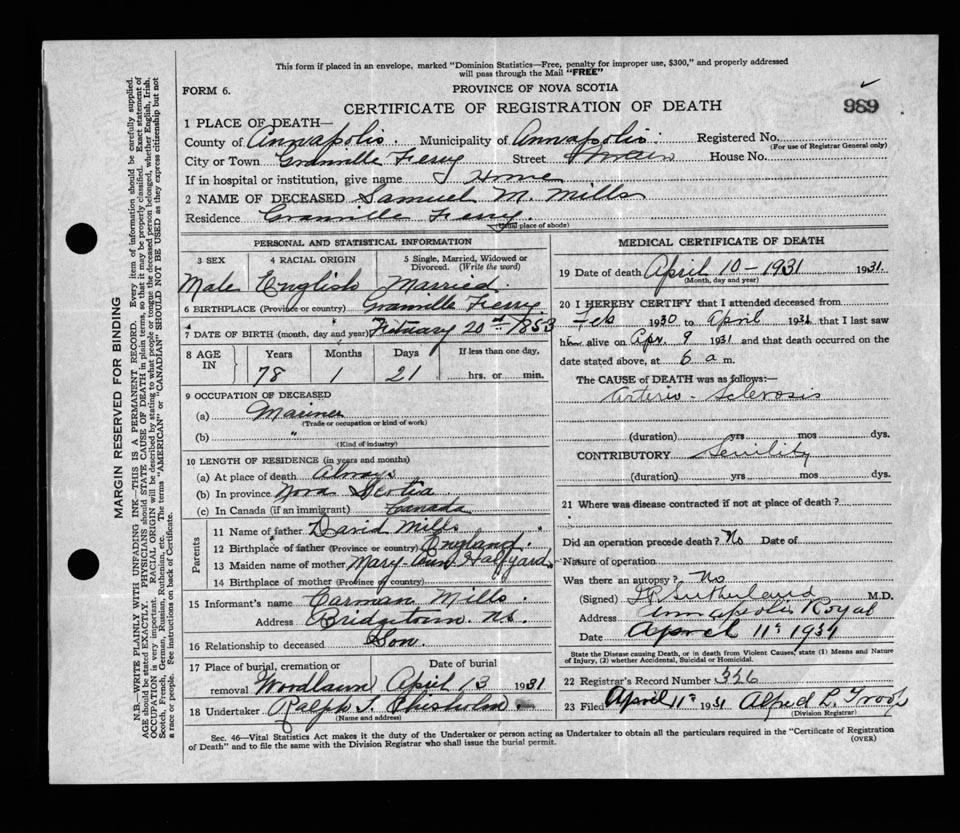 This form if placed in an envelope, marked "Dominion Statistics—Free, penalty for improper use, $300," and properly addressed
will pass through the Mail "FREE"
FORM 6.
PROVINCE OF NOVA SCOTIA
CERTIFICATE OF REGISTRATION OF DEATH
989
1 PLACE OF DEATH—
County of Annapolis. Municipality of Annapolis. Registered No.
(For use of Registrar General only)
City or Town Granville Ferry Street Main House No.
If in hospital or institution, give name Home
2 NAME OF DECEASED Samuel M. Mills
Residence Granville Ferry.
(Usual place of abode)
PERSONAL AND STATISTICAL INFORMATION
3 SEX 4 RACIAL ORIGIN 5 Single, Married, Widowed or
Divorced. (Write the word)
Male English Married.
6 BIRTHPLACE (Province or country) Granville Ferry
7 DATE OF BIRTH (month, day and year) February 20th 1853
8 AGE IN Years Months Days If less than one day,
78 1 21 hrs. or min.
9 OCCUPATION OF DECEASED
(a) Mariner
(Trade or occupation or kind of work)
(b) "
(Kind of industry)
10 LENGTH OF RESIDENCE (in years and months)
(a) At place of death Always
(b) In province Nova Scotia
(c) In Canada (if an immigrant) Canada
Parents
11 Name of father David Mills
12 Birthplace of father (Province or country) England.
13 Maiden name of mother Mary Ann Halfyard
14 Birthplace of mother (Province or country)
15 Informant's name Carman Mills.
Address Bridgetown. N.S.
16 Relationship to deceased Son.
17 Place of burial, cremation or Date of burial
removal Woodlawn April 13 1931
18 Undertaker Ralph T. Chisholm
(Name and address)
MEDICAL CERTIFICATE OF DEATH
19 Date of death April 10 - 1931 1931.
(Month, day and year)
20 I HEREBY CERTIFY that I attended deceased from
Feb 1930 to April 1931 that I last saw
him alive on Apr. 9 1931 and that death occurred on the
date stated above, at 6 a m.
The CAUSE OF DEATH was as follows:—
Arterio-Sclerosis
(duration) yrs mos dys.
CONTRIBUTORY Senility
(duration) yrs mos dys.
21 Where was disease contracted if not at place of death?
Did an operation precede death? No Date of
Nature of operation
Was there an autopsy? No
(Signed) Sutherland M.D.
Address Annapolis Royal
Date April 11th 1931
State the Disease causing Death, or in death from Violent Causes, state (1) Means and Nature
of Injury, (2) whether Accidental, Suicidal or Homicidal.
22 Registrar's Record Number 356
23 Filed April 11th 1931 Alfred L. Troop
(Division Registrar)
Sec. 46—Vital Statistics Act makes it the duty of the Undertaker or person acting as Undertaker to obtain all the particulars required in the "Certificate of Registration
of Death" and to file the same with the Division Registrar who shall issue the burial permit.
(OVER)
MARGIN RESERVED FOR BINDING
N.B.—WRITE PLAINLY WITH UNFADING INK—THIS IS A PERMANENT RECORD. Every item of information should be carefully supplied.
AGE should be stated EXACTLY. PHYSICIANS should STATE CAUSE OF DEATH in plain terms, so that it may be properly classified. Exact statement of
OCCUPATION is very important. RACIAL ORIGIN will be described by stating to what people or tongue the deceased person belonged, whether English, Irish,
Scotch, French, German, Russian, Ruthenian, etc. The terms "AMERICAN" or "CANADIAN" SHOULD NOT BE USED as they express citizenship but not
a race or people. See instructions on back of Certificate.